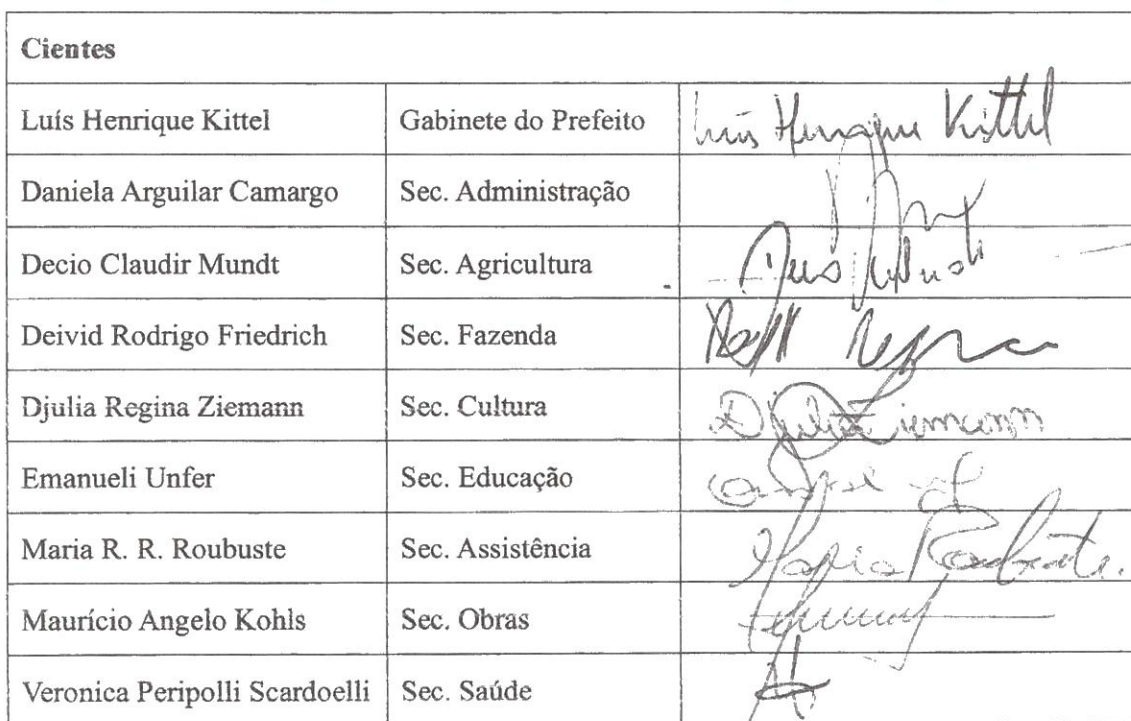 Cientes
Luís Henrique Kittel Gabinete do Prefeito Luís Henrique Kittel
Daniela Arguilar Camargo Sec. Administração
Decio Claudir Mundt Sec. Agricultura
Deivid Rodrigo Friedrich Sec. Fazenda
Djulia Regina Ziemann Sec. Cultura Djulia Ziemann
Emanueli Unfer Sec. Educação
Maria R. R. Roubuste Sec. Assistência Maria Roubuste.
Maurício Angelo Kohls Sec. Obras
Veronica Peripolli Scardoelli Sec. Saúde